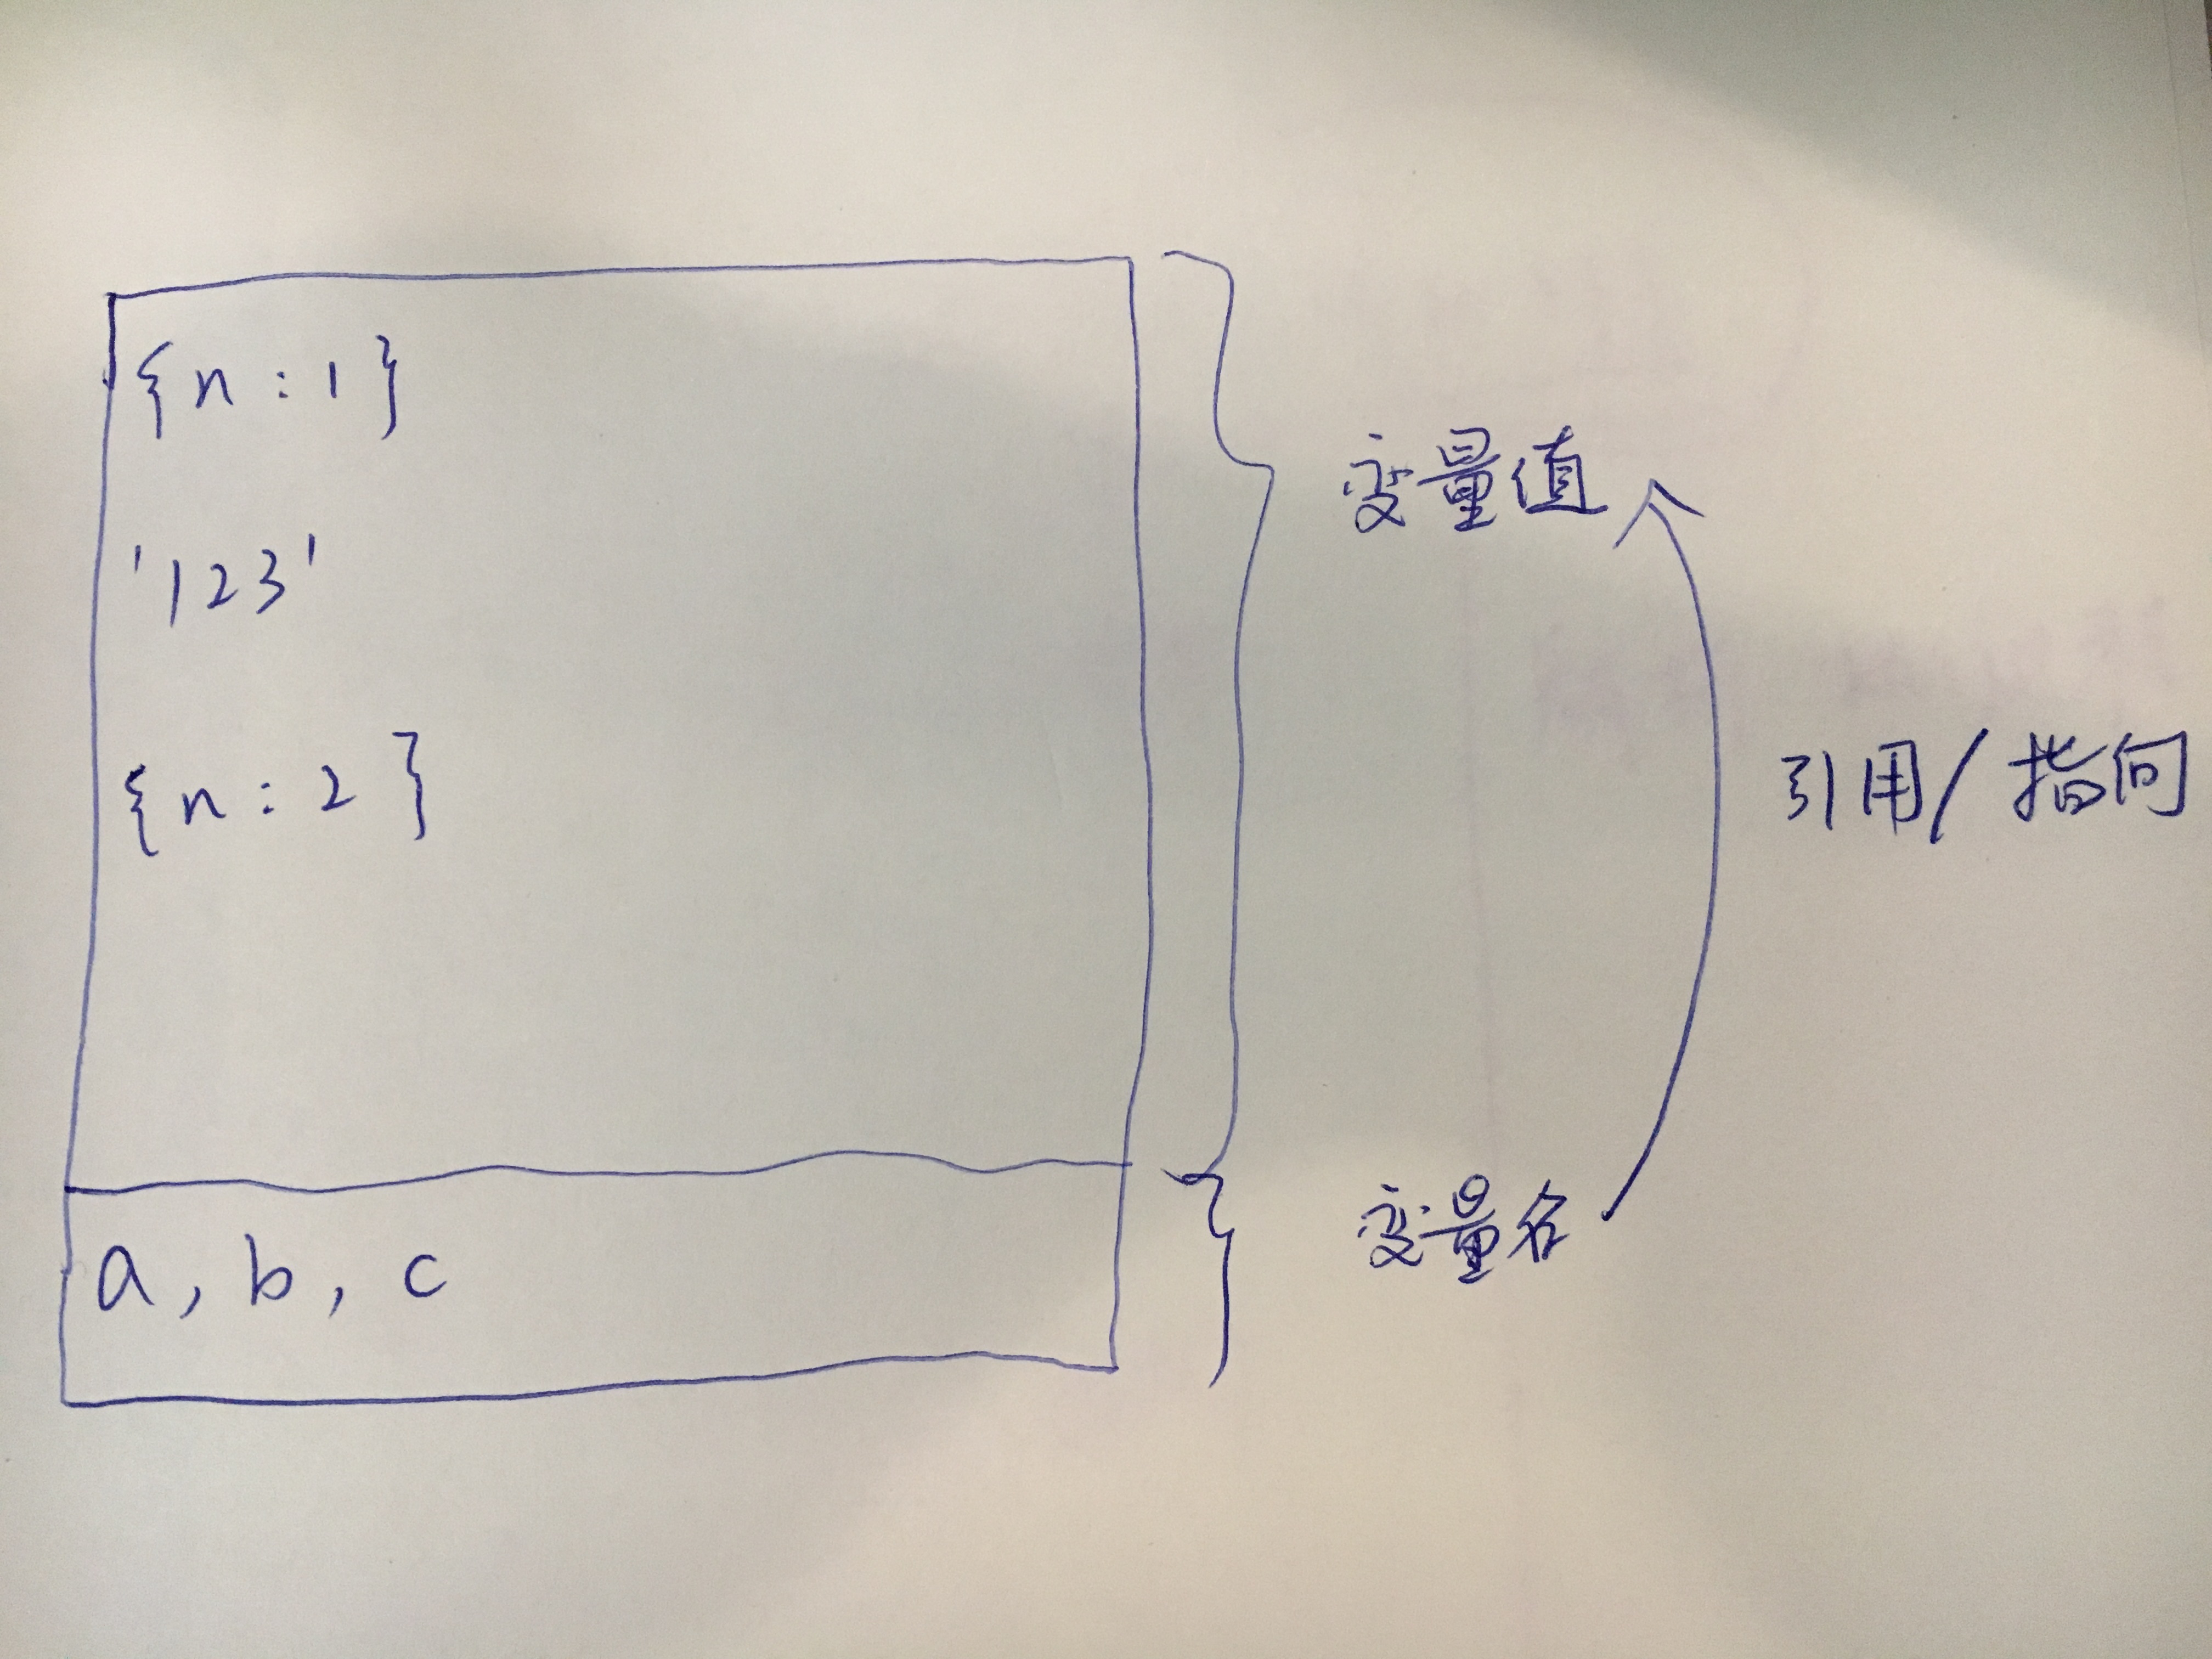 {n:1}
'123'
{n:2}
a, b, c
变量值
引用/指向
变量名